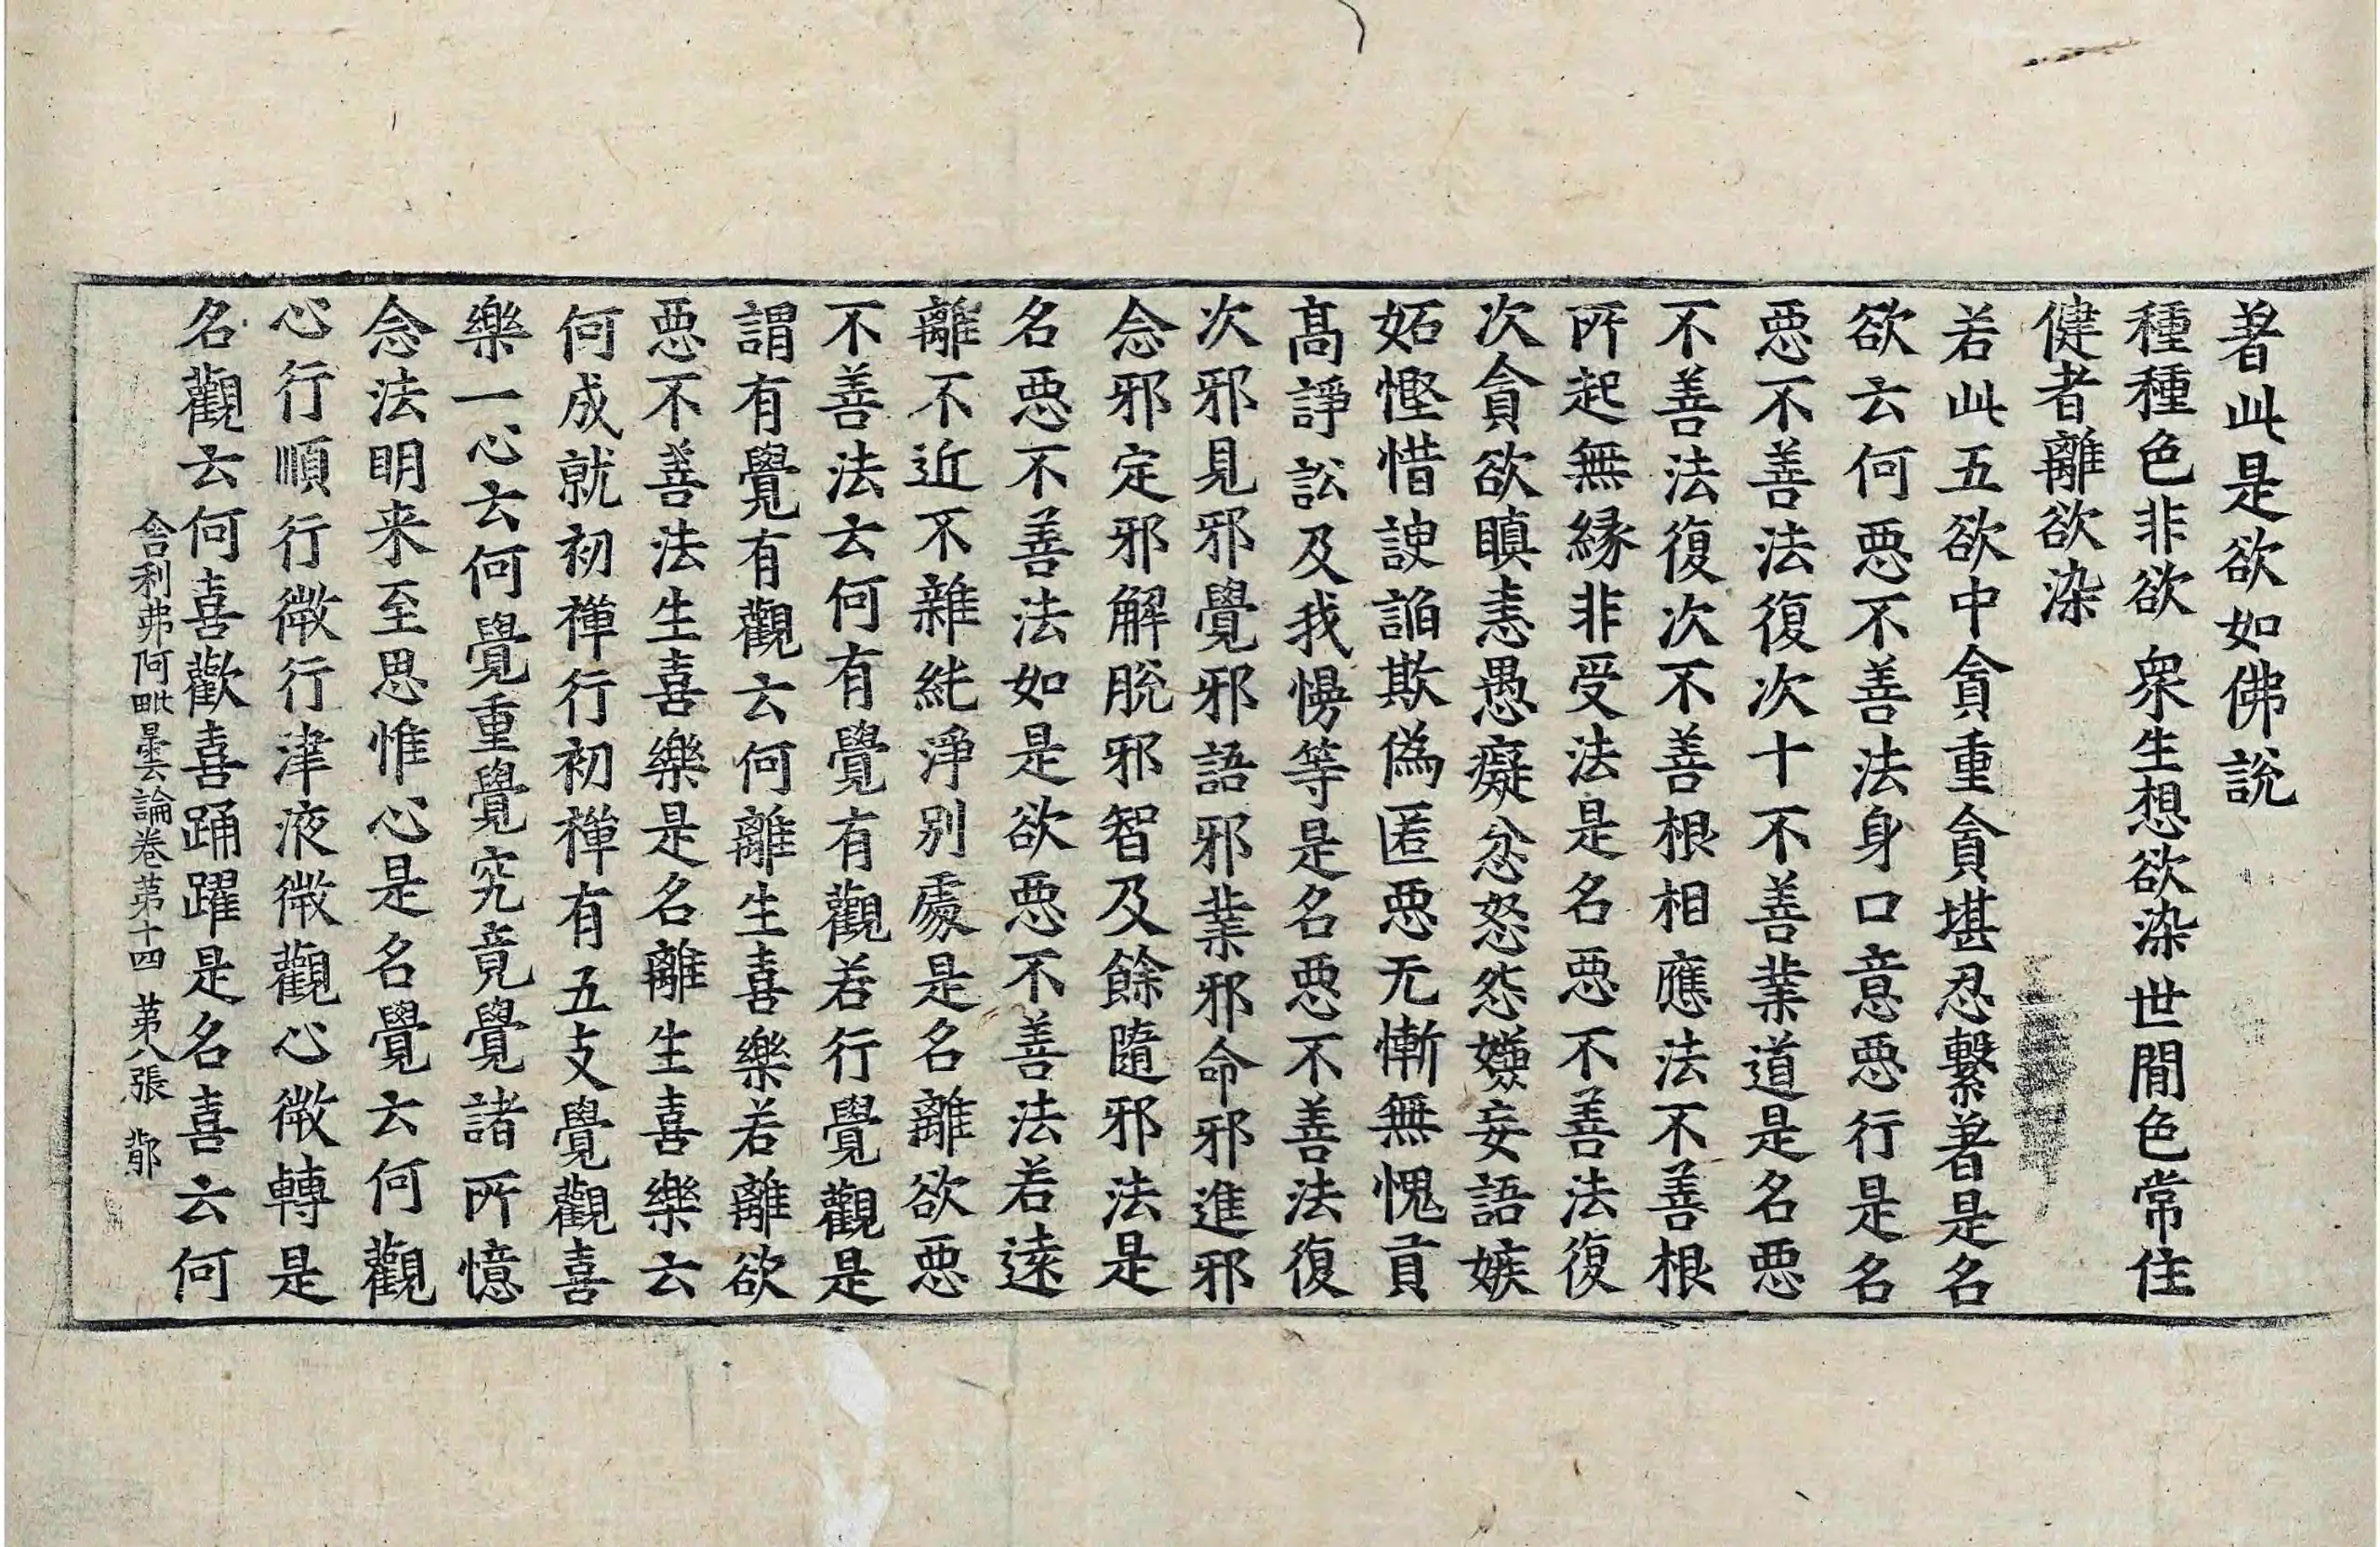 著此是欲如佛說
種種色非欲　衆生想欲染　世閒色常住
健者離欲染
若此五欲中貪重貪堪忍繫著是名
欲云何惡不善法身口意惡行是名
惡不善法復次十不善業道是名惡
不善法復次不善根相應法不善根
所起無緣非受法是名惡不善法復
次貪欲瞋恚愚癡忿怒怨嫌妄語嫉
妬慳惜諛諂欺僞匿惡无慚無愧貢
髙諍訟及我慢等是名惡不善法復
次邪見邪覺邪語邪業邪命邪進邪
念邪定邪解脫邪智及餘隨邪法是
名惡不善法如是欲惡不善法若逺
離不近不雜純淨別處是名離欲惡
不善法云何有覺有觀若行覺觀是
謂有覺有觀云何離生喜樂若離欲
惡不善法生喜樂是名離生喜樂云
何成就初禪行初禪有五支覺觀喜
樂一心云何覺重覺究竟覺諸所憶
念法明来至思惟心是名覺云何觀
心行順行微行津液微觀心微轉是
名觀云何喜歡喜踊躍是名喜云何
舍利弗阿毗曇論卷苐十四　苐八張　鄁